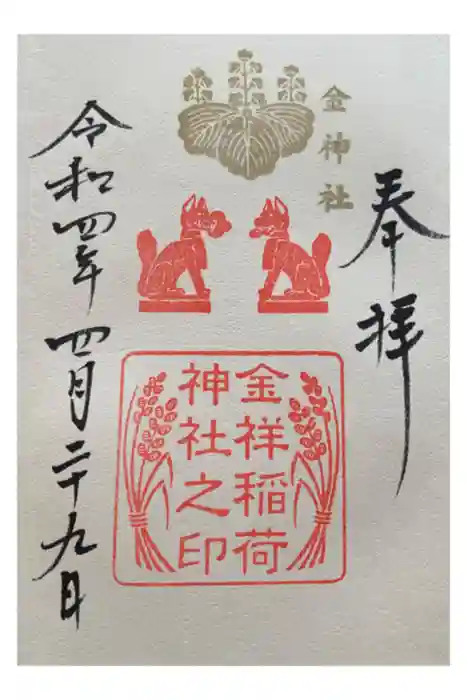 奉拝
金神社
金祥稲荷
神社之印
令和四年 四月二十九日